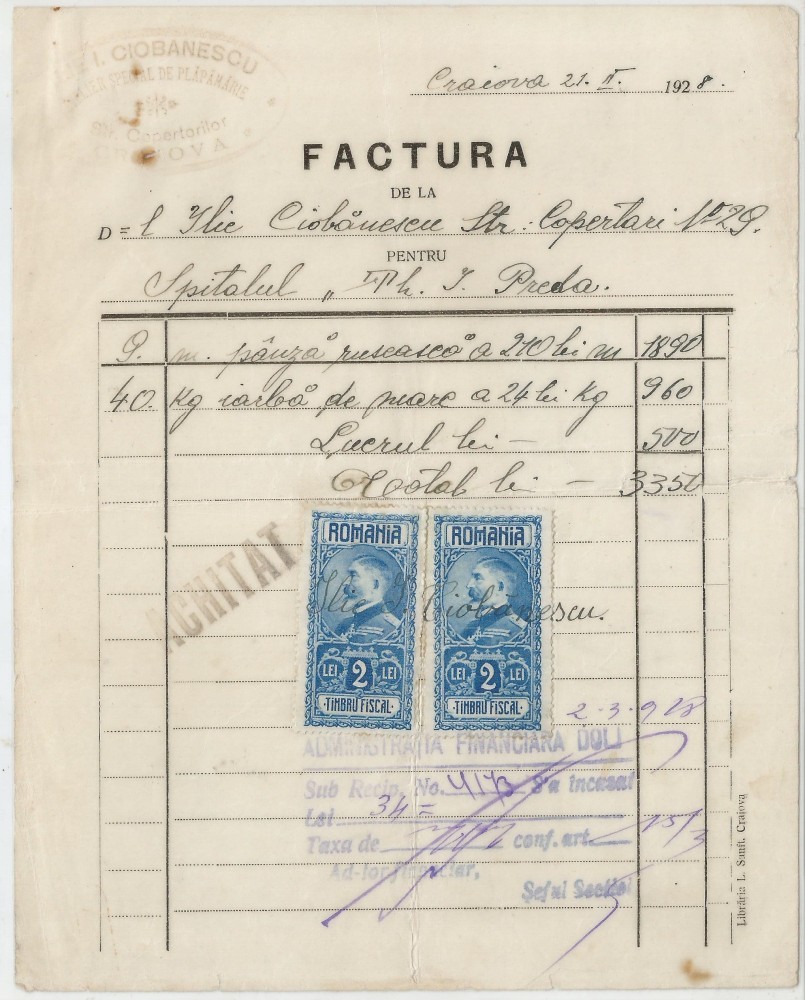 I. CIOBANESCU
SPECIAL DE PLĂPĂMĂRIE
Str. Copertarilor
CRAIOVA
Craiova 21. II. 1928.
FACTURA
DE LA
D=l Ilie Ciobănescu Str: Copertari No 29.
PENTRU
Spitalul „ Ph. I. Preda.
9. m. pânză rusească a 210 lei m 1890
40. Kg iarbă de mare a 24 lei Kg 960
Lucrul lei — 500
Tootal lei — 3350
ACHITAT
ROMANIA ROMANIA
Ilie I. Ciobănescu.
LEI 2 LEI LEI 2 LEI
TIMBRU FISCAL TIMBRU FISCAL
2-3-928
ADMINISTRAȚIA FINANCIARA DOLJ
Sub Recip. No. 4173 S'a incasat
Lei 34=
Taxa de conf. art. 15/3
Ad-tor financiar,
Șeful Secției
Librăria L. Sunft. Craiova